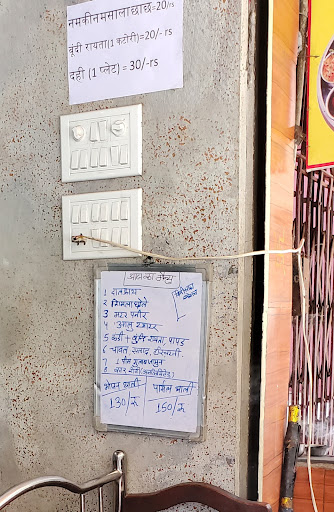 नमकीनमसालाछाछ=20/rs
बूंदी रायता(1 कटोरी)=20/- rs
दही (1 प्लेट) = 30/-rs
आज का मेन्यू
1 दालफ्राय
2
3 मटर पनीर
4 आलू टमाटर
5 कढी + बुंदी रायता, पापड
6 चावल, सलाद,
7 1 पीस गुलाबजामुन
8
स्पेशल थाली
130/रू
पार्सल थाली
150/रू